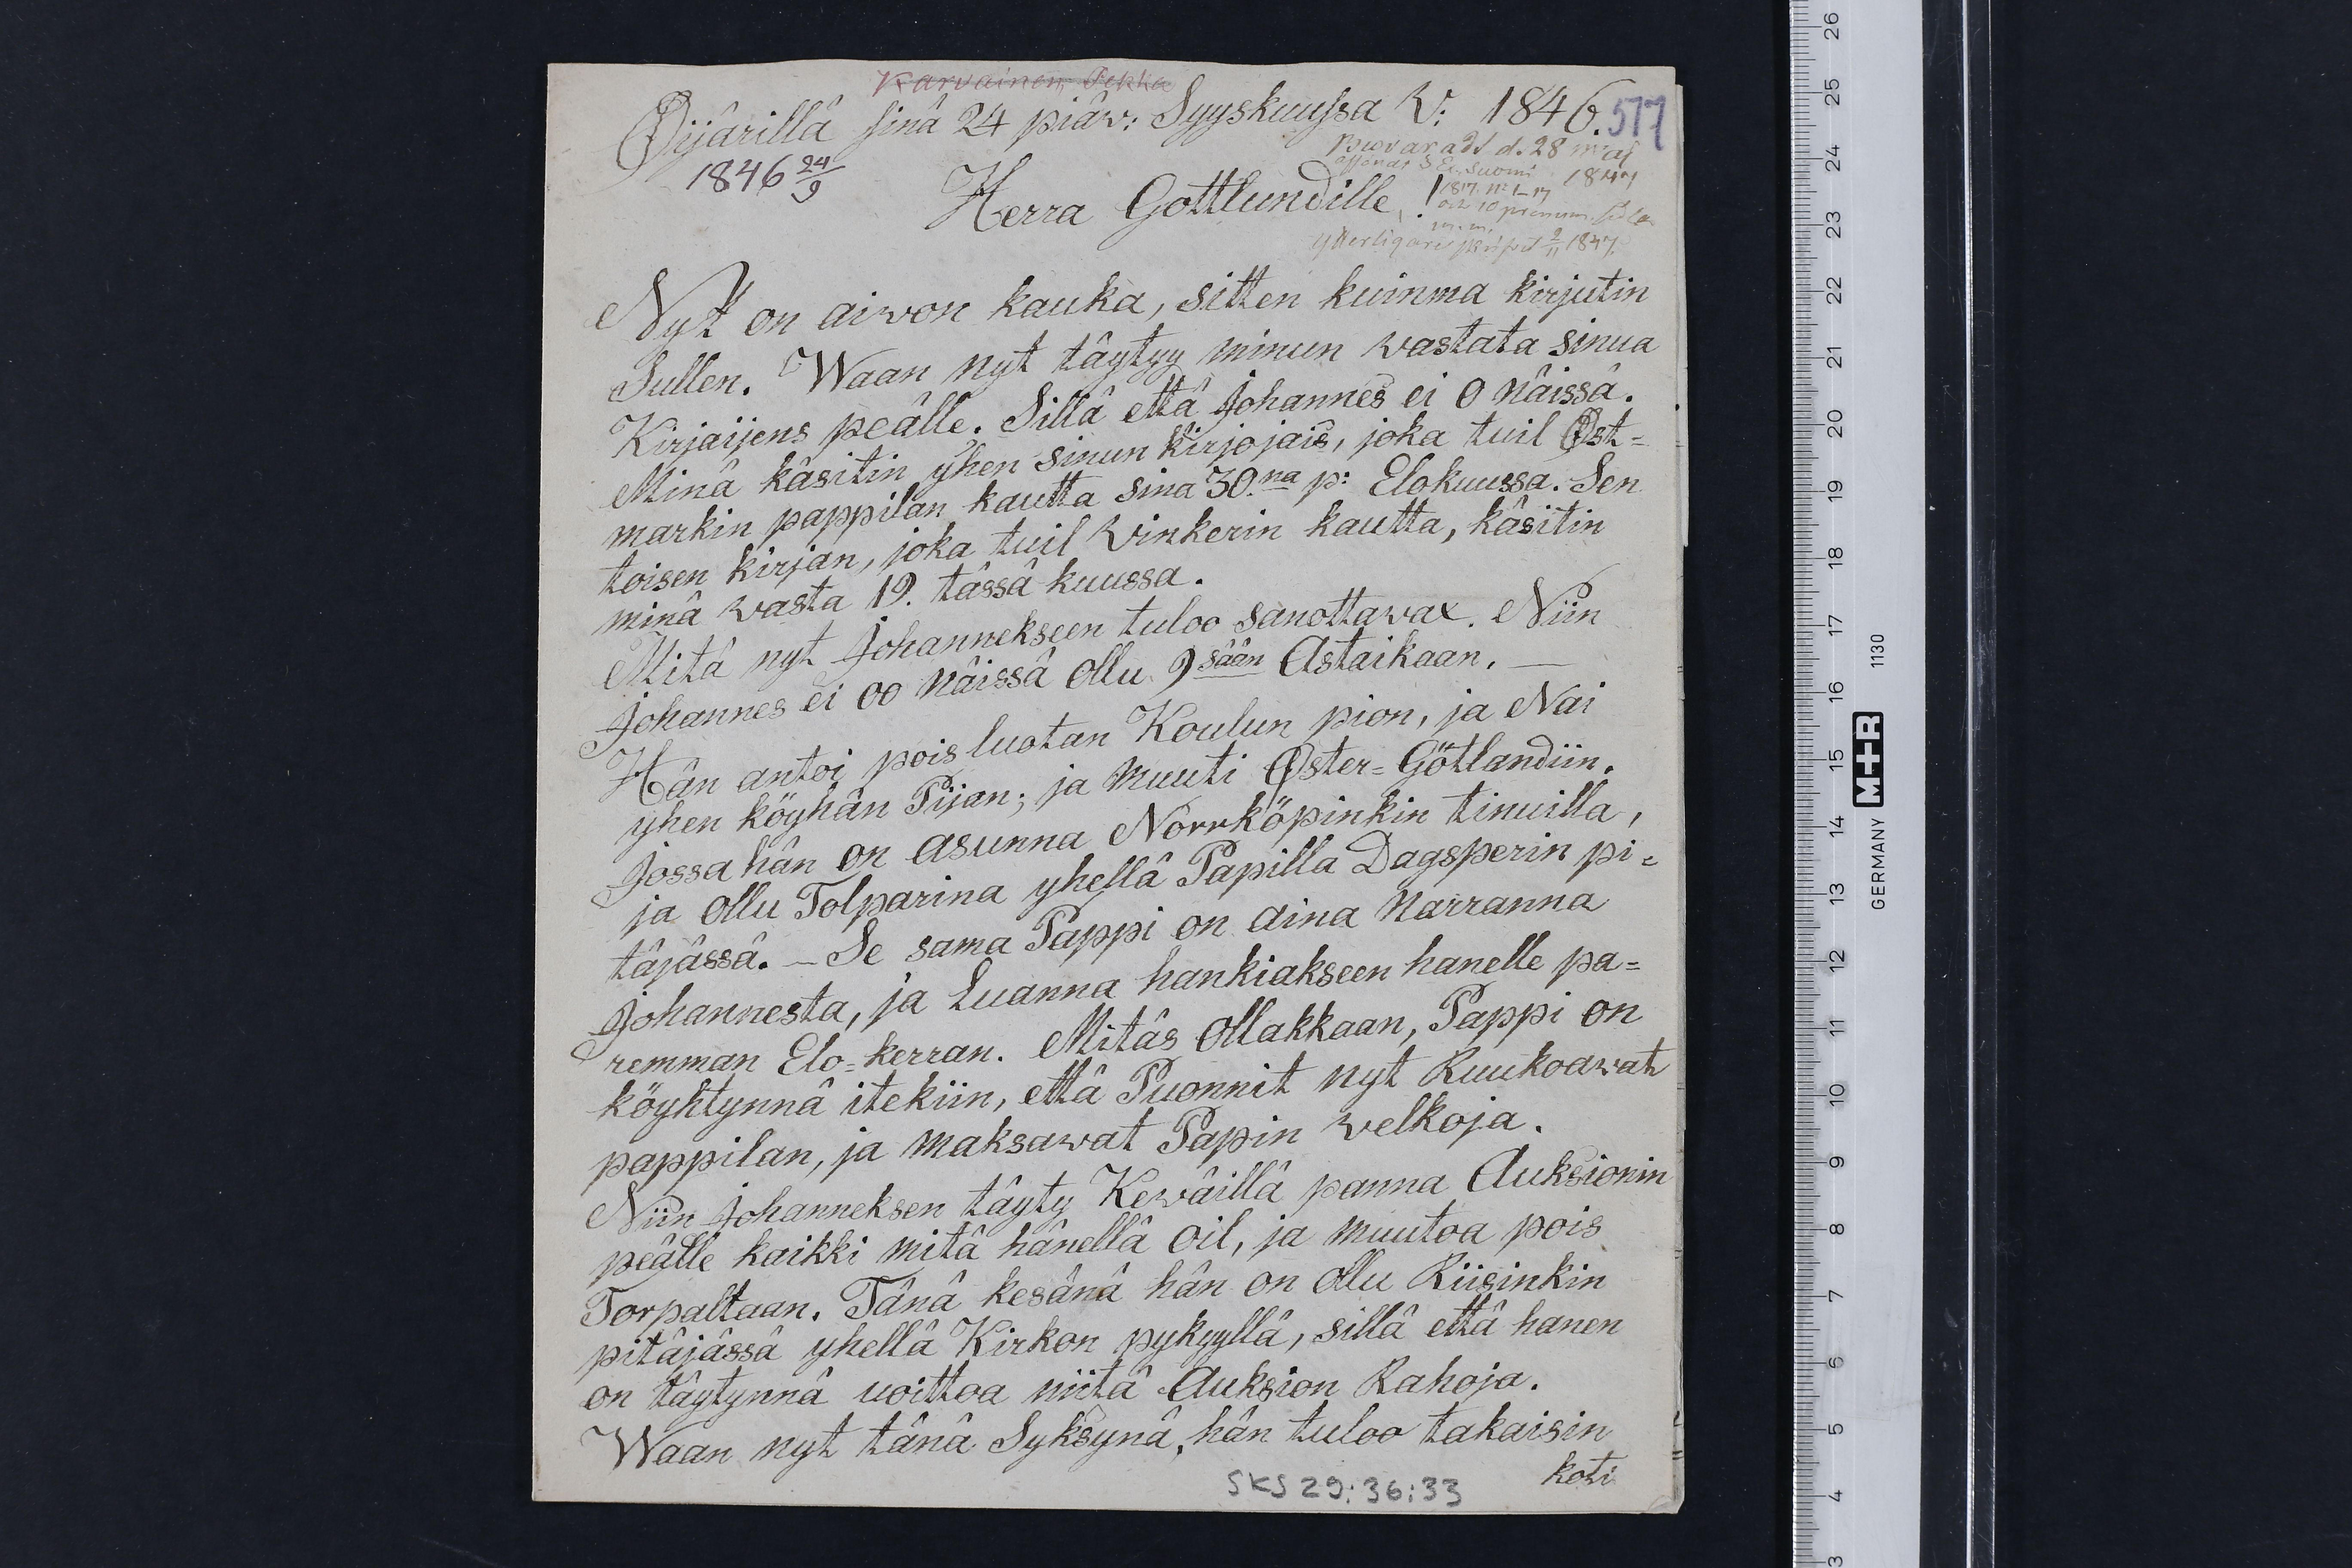 Karvainen, Pekka
Øijârillâ sinâ 24 piâw: Syyskuussa V: 1846.
517
1846 24/9
Besvaradt d. 28 maj
1847
Herra Gottlundille,!
ytterligare 9/11 1847.
Nyt on aiwon kauka, sitten kuinma kirjutin
Sullen. Waan nyt tâytyy minun wastata sinua
Kirjaijens peâlle. Sillâ ettâ Johannes ei O nâissâ.
Minâ kâsitin yhen sinun kirjojais, joka tuil Øst=
markin pappilan kautta sina 30.na p: Elokuussa. Sen
toisen kirjan, joka tuil Vinkerin kautta, kâsitin
minâ wasta 19. tâssâ kuussa.
Mitâ nyt Johannekseen tuloo sanottawax. Niin
Johannes ei oo nâissâ ollu 9sään Astaikaan. —
Hân antoi pois luotan Koulun pion, ja Nai
yhen köyhân Piian; ja muuti Øster=Götlandiin.
Jossa hân on asunna Norrköpinkin tinuilla,
ja ollu Tolparina yhellâ Papilla Dagsperin pi=
tâjâssâ. — Se sama Pappi on aina Narranna
Johannesta, ja Luanna hankiakseen hanelle pa=
remman Elo=kerran. Mitâs Ollakkaan, Pappi on
köyhtynnâ itekiin, ettâ Puonnit nyt Ruukoawat
pappilan, ja maksawat Papin welkoja.
Niin Johanneksen tâyty Kewâillâ panna Auksionin
peâlle kaikki mitâ hânellâ oil, ja muutoa pois
Torpaltaan. Tânâ kesânâ hân on ollu Riisinkin
pitâjâssâ yhellâ Kirkon pykyyllâ, sillâ ettâ hanen
on tâytynnâ uoittoa niitâ Auksion Rahoja.
Waan nyt tânâ Syksynâ, hân tuloo takaisin
koti
SKS 29:36:33
26
25
24
23
22
21
20
19
18
17
16
15
14
13
12
11
10
9
8
7
6
5
4
3
GERMANY M+R 1130